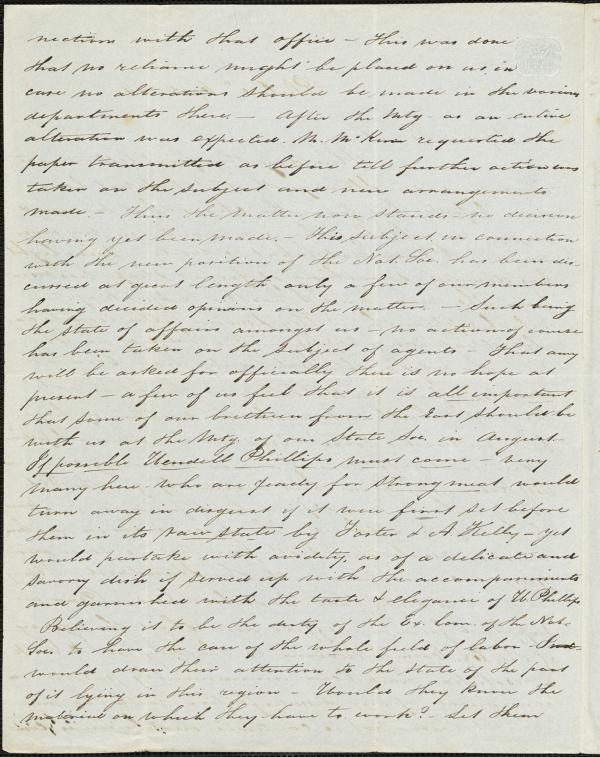 nections with that office – this was done
that no reliance might be placed on us, in
case no alterations should be made in the various
departments there. – After the Mtg as an entire
alteration was expected. M. McKim requested the
paper transmitted as before till further action was
taken on the subject and new arrangements
made. – Thus the matter now stands – no decision
having yet been made. – This subject in connection
with the new position of the Nat. Soc. has been dis-
cussed at great length only a few of our members
having decided opinions on the matter. – Such being
the state of affairs amongst us – no action of course
has been taken on the subject of agents – That any
will be asked for officially there is no hope at
present – a few of us feel that it is all important
that some of our brethren from the East should be
with us at the Mtg. of our State Soc. in August
If possible Wendell Phillips must come – very
many here who are ready for strong meat would
turn away in disgust if it were first set before
them in its raw state by Foster & A. Kelly – yet
would partake with avidity, as of a delicate and
savory dish if served up with the accompaniments
and garnished with the taste & elegance of W. Phillips
Believing it to be the duty of the Ex. Com. of the Nat.
Soc. to have the care of the whole field of labor
would draw their attention to the state of the part
of it lying in this region – Would they know the
material on which they have to work? – Let them